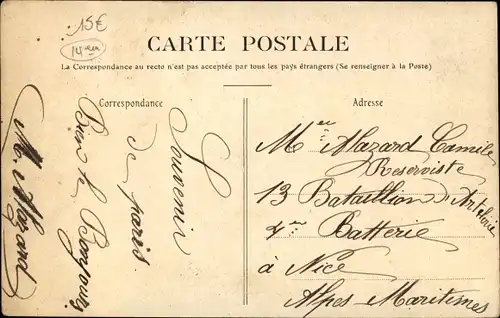 15€
14em
CARTE POSTALE
La Correspondance au recto n'est pas acceptée par tous les pays étrangers (Se renseigner à la Poste)
Correspondance
Souvenir
de paris
Bien le Bonjour
M. Mazard
Adresse
Mer Mazard Camile
Reserviste
13 Bataillon Artelerie
4me Batterie
à Nice
Alpes Maritimes